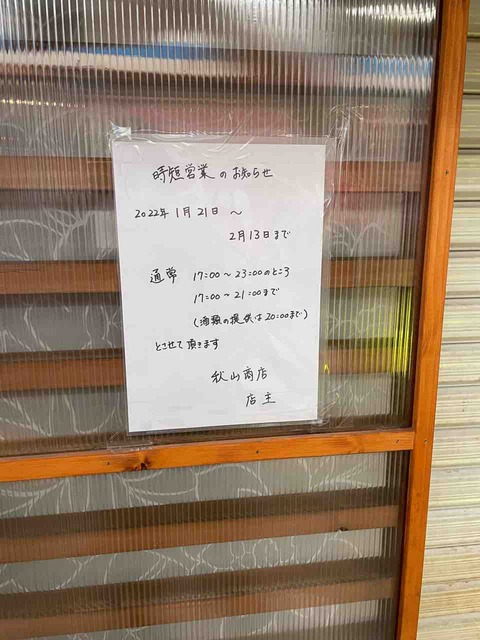 時短営業のお知らせ
2022年1月21日 ～
2月13日まで
通常 17:00～23:00のところ
17:00～21:00まで
(酒類の提供は20:00まで)
とさせて頂きます
秋山商店
店主